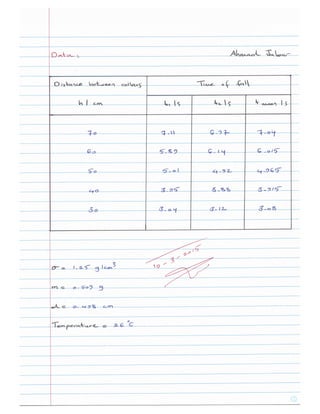 Data:
Ahmad Jabar
Distance between collars
Time of fall
h / cm
t₁ /s
t₂ /s
t mean /s
70
7.11
6.97
7.04
60
5.89
6.14
6.015
50
5.01
4.92
4.965
40
3.95
3.88
3.915
30
3.04
3.12
3.08
σ = 1.25 g/cm³
10 - 3 - 2015
m = 0.509 g
d = 0.498 cm
Temperature = 26 °C